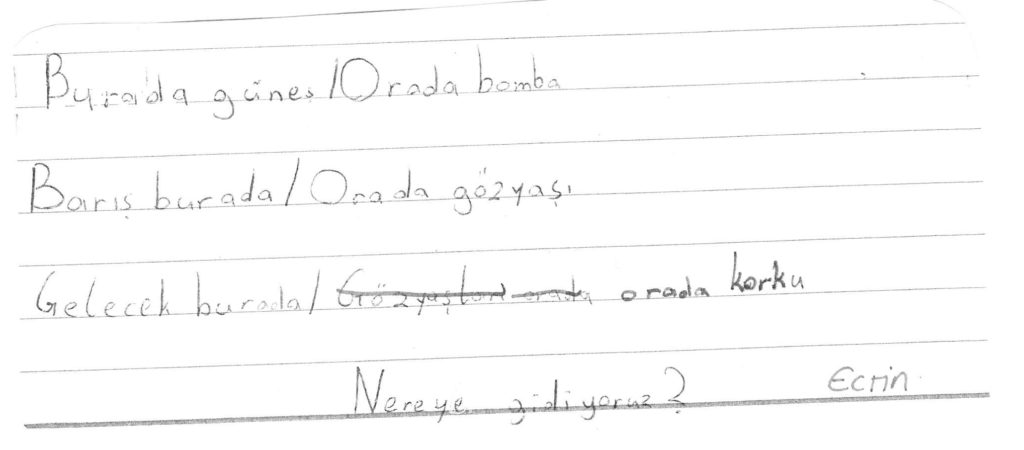 Burada güneş / Orada bomba
Barış burada / Orada gözyaşı
Gelecek burada / Gözyaşları orada orada korku
Nereye gidiyoruz? Ecrin